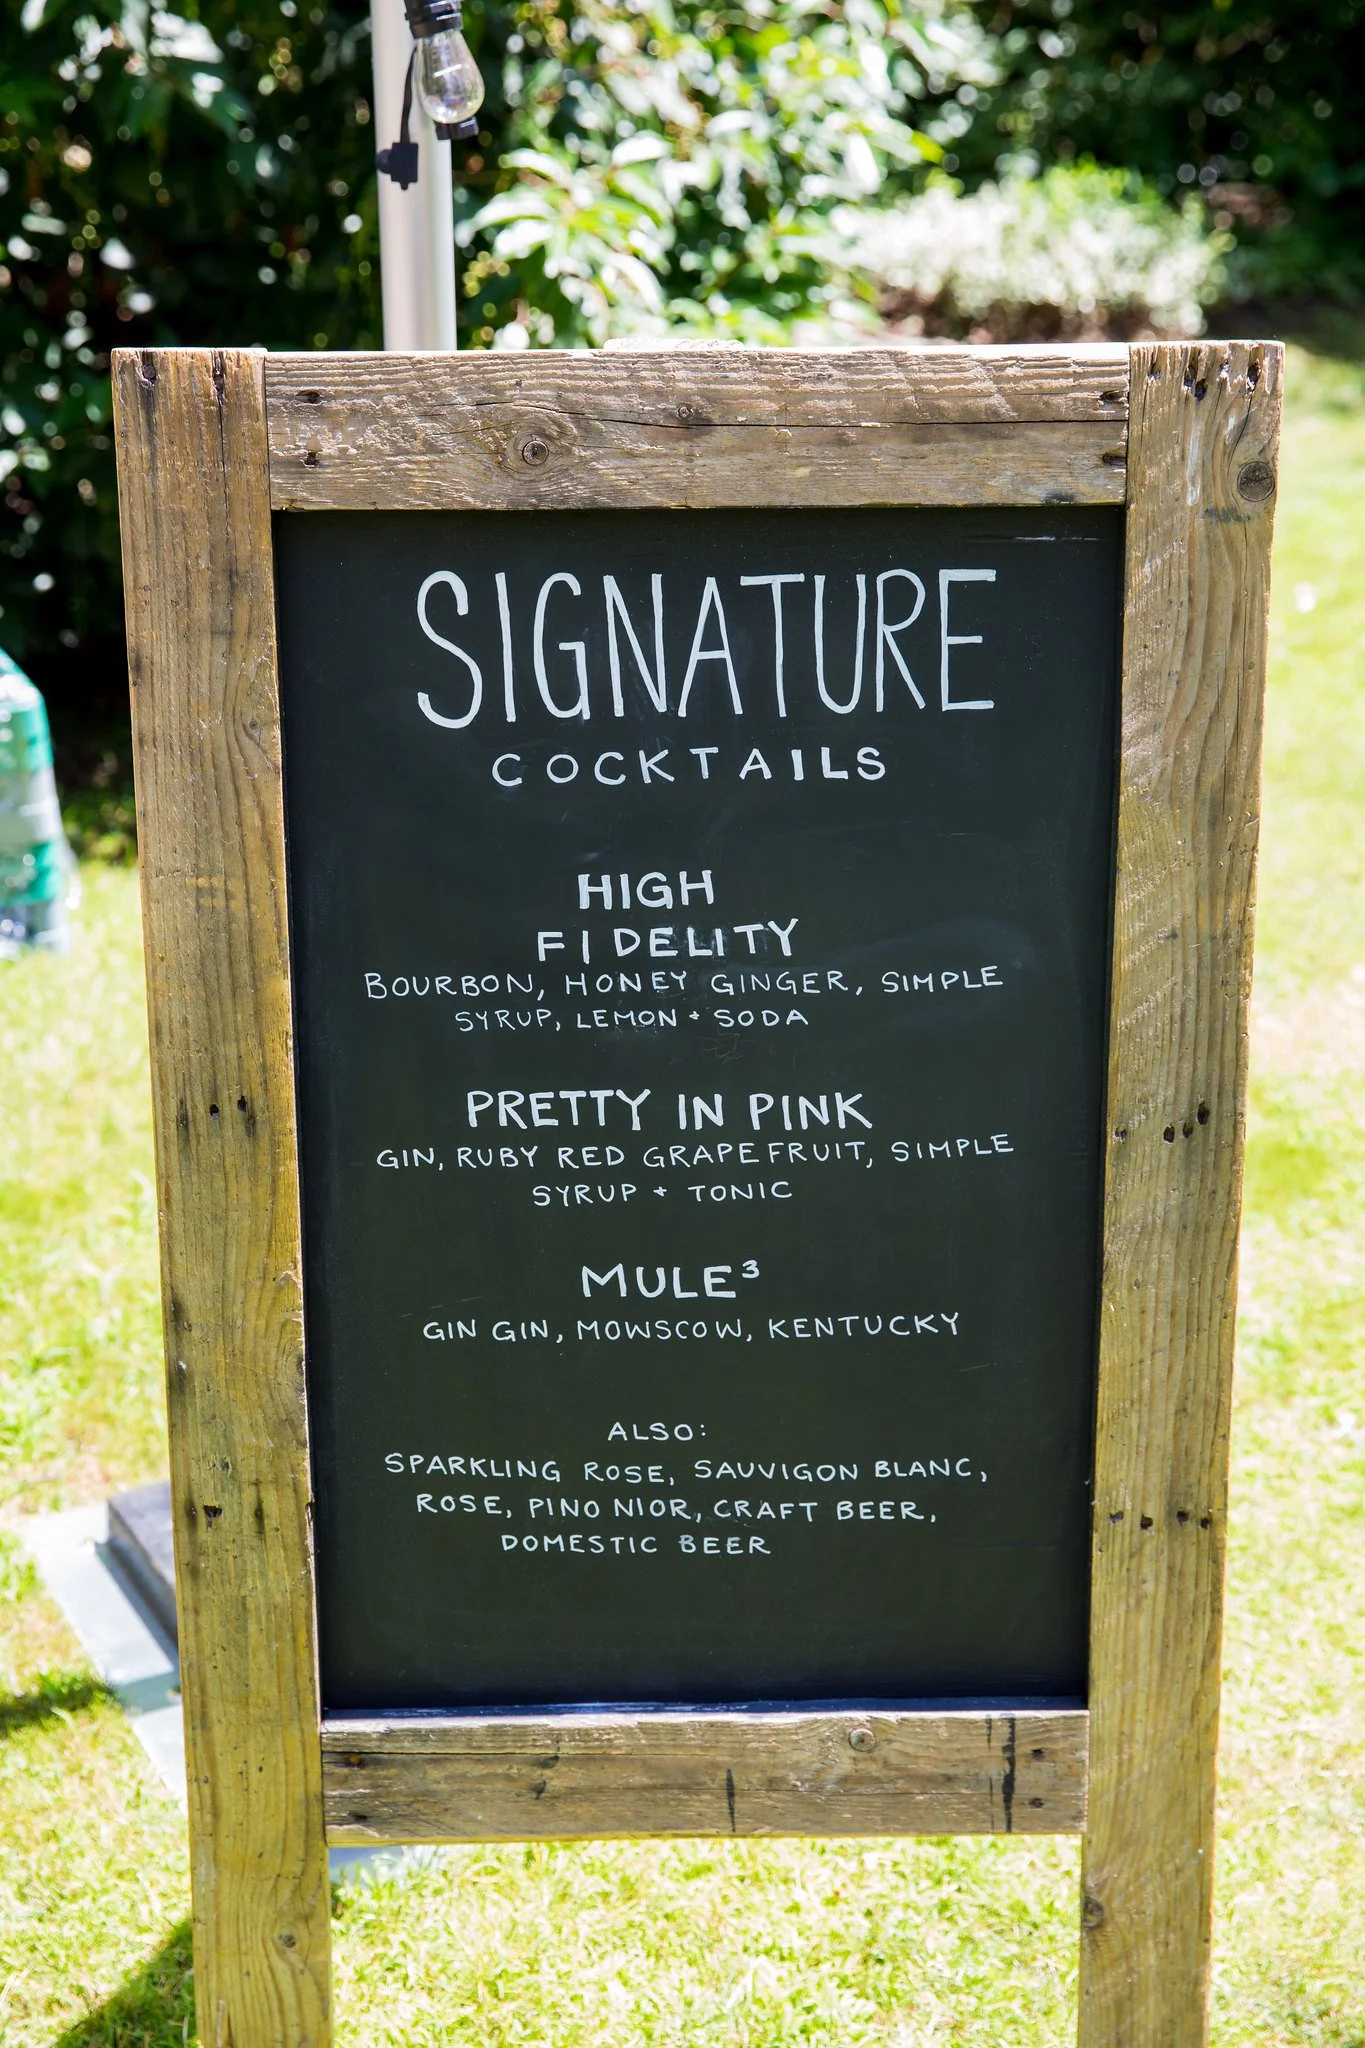 SIGNATURE
COCKTAILS
HIGH
FIDELITY
BOURBON, HONEY GINGER, SIMPLE
SYRUP, LEMON + SODA
PRETTY IN PINK
GIN, RUBY RED GRAPEFRUIT, SIMPLE
SYRUP + TONIC
MULE³
GIN GIN, MOWSCOW, KENTUCKY
ALSO:
SPARKLING ROSE, SAUVIGON BLANC,
ROSE, PINO NIOR, CRAFT BEER,
DOMESTIC BEER